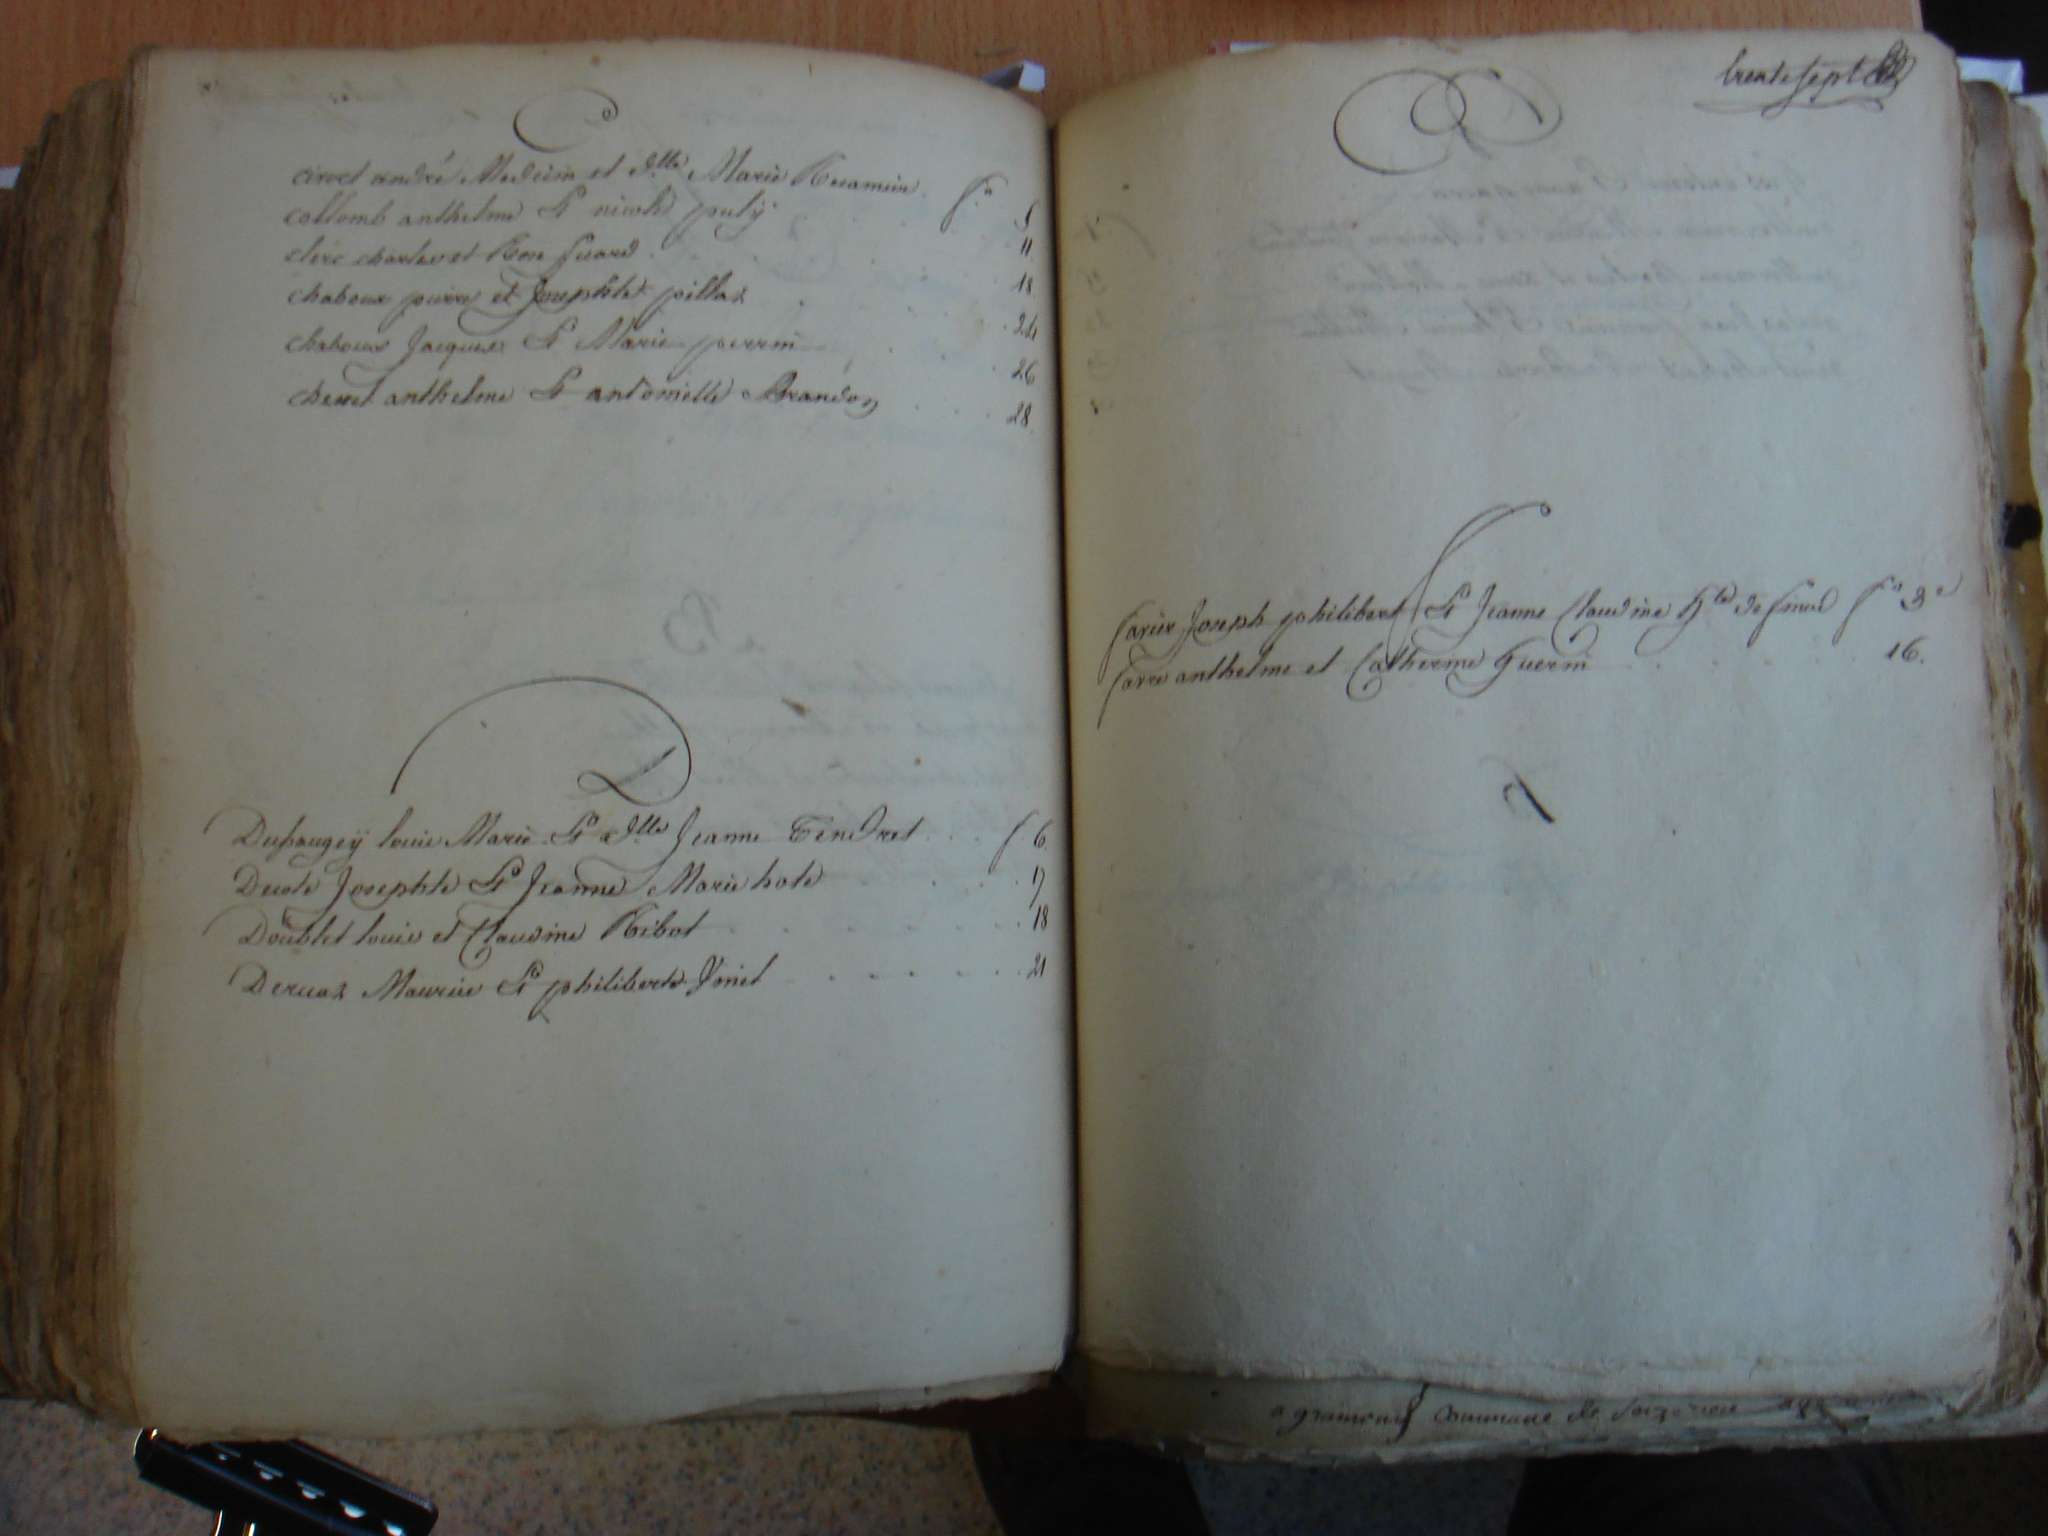 C
Civoct andré Medecin et d.lle Marie Recamier . f.o 5
collomb anthelme Et nicole putij 11
clerc charles et Rose Girard . 18
chaboux pierre et Josephte pillaz . . 24
chaboux Jacques Et Marie perrin . 26
chevret anthelme Et antoinette Brandon . . . . 28
D
Dupaugey louis Marie Et d.lle Jeanne Tendret . . . f 6
Decote Josephte Et Jeanne Marie hote . . . 17
Doublet louis et Claudine Ribot . . . . . . . 18
Dervaz Maurice Et philiberte Jonet . . . . . . 21
trente sept
E
F
favier Joseph philibert Et Jeanne Claudine h.te de f.o 3
favre anthelme et Catherine Guerin . . . . 16.
a gramont Commune de